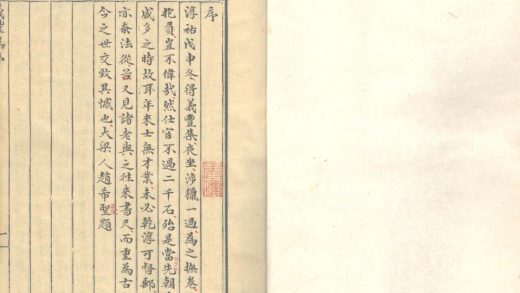 序
淳祐戊申冬得義豐集夜坐涉獵一過為之撫卷
抱負豈不偉哉然仕官不過二千石殆是當先朝
盛多之時故耳年來士無才業未必乾淳可督郵
亦忝法從 又見諸老與之往來書尺而重為古
今之世交致其憾也大梁人趙希聖題